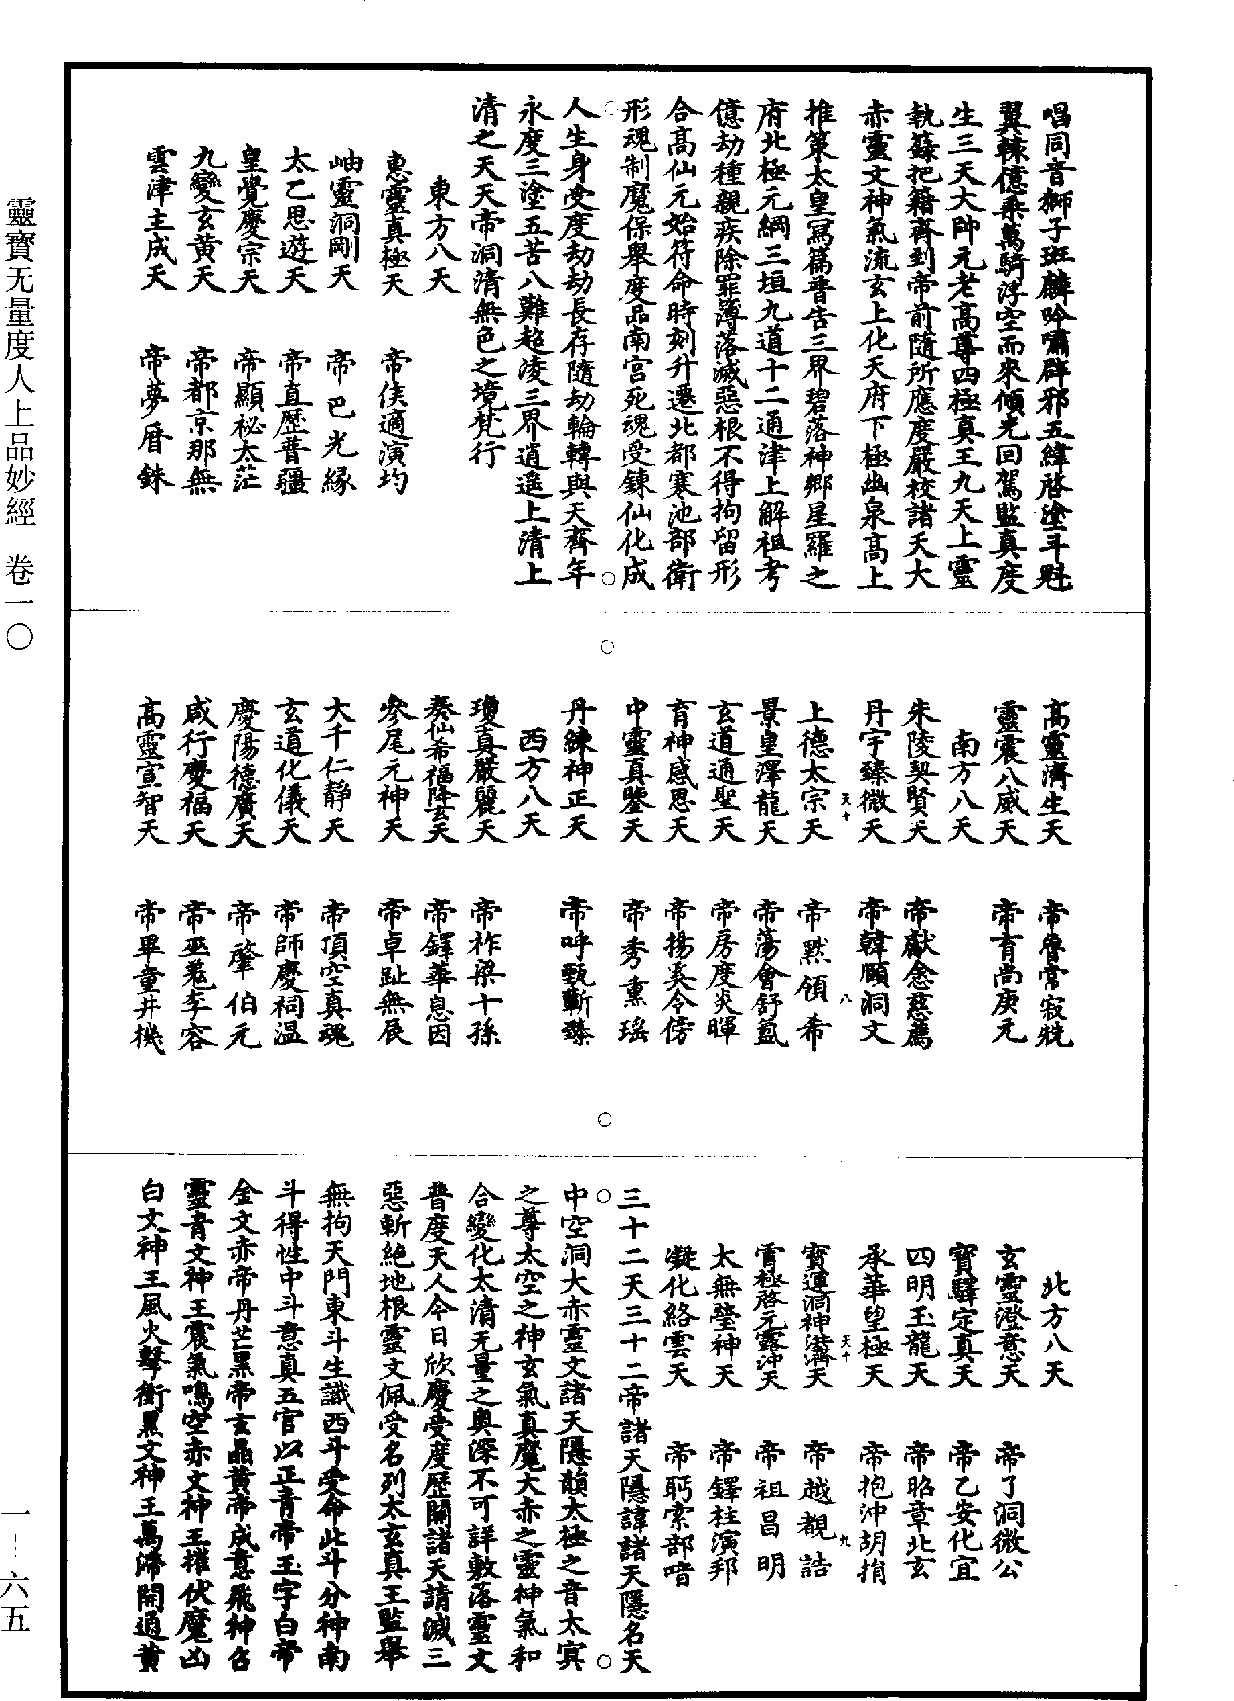 唱同音獅子斑麟吟嘯辟邪五緯啓塗斗魁
翼轅億乘萬騎浮空而來傾光回駕監真度
生三天大帥元老高尊四極真王九天上靈
執籙把籍齊到帝前隨所應度嚴校諸天大
赤靈文神氣流玄上化天府下極幽泉高上
推策太皇寫篇普告三界碧落神鄉星羅之
府北極元綱三垣九道十二通津上解祖考
億劫種親疾除罪簿落滅惡根不得拘留形
合高仙元始符命時刻升遷北都寒池部衛
形魂制魔保舉度品南宮死魂受鍊仙化成
人生身受度劫劫長存隨劫輪轉與天齊年
永度三塗五苦八難超凌三界逍遙上清上
清之天天帝洞清無色之境梵行
東方八天
惠靈真極天 帝侯適演均
岫靈洞剛天 帝巴光緣
太乙思遊天 帝直歷普疆
皇覺慶宗天 帝顯祕太茫
九變玄黃天 帝都京那無
雲津主成天 帝夢厝銖
高靈濟生天 帝魯常寂兟
靈震八威天 帝育尚庚元
南方八天
朱陵契賢天 帝獻念慈薦
丹宇臻微天 帝韓頤洞文
上德太宗天 帝默領希
天十 八
景皇澤龍天 帝蕩會舒氤
玄道通聖天 帝房度炎暉
育神感恩天 帝揚奚令傍
中靈真鑒天 帝秀熏瑤
丹鍊神正天 帝呼甄斬臻
西方八天
瓊真嚴麗天 帝祚梁十孫
奏仙希福降玄天 帝鐸華息因
參尾元神天 帝卓趾無辰
大千仁靜天 帝頂空真魂
玄道化儀天 帝師慶祠溫
慶陽德廣天 帝肇伯元
咸行慶福天 帝巫菟李容
高靈宣智天 帝畢童井機
北方八天
玄靈澄意天 帝了洞微公
寶驛定真天 帝乙安化宜
四明玉龍天 帝昭章北玄
承華望極天 帝抱沖胡捐
寶運洞神濟天 帝越觀誥
天十 九
霄極啓元露沖天 帝祖昌明
太無瑩神天 帝鐸柱演邦
凝化絡雲天 帝眄索部喑
三十二天三十二帝諸天隱諱諸天隱名天
中空洞大赤靈文諸天隱韻太極之音太冥
之尊太空之神玄氣真魔大赤之靈神氣和
合變化太清无量之奧深不可詳敷落靈文
普度天人今日欣慶受度歷關諸天請滅三
惡斬絕地根靈文佩受名列太玄真王監舉
無拘天門東斗生識西斗受命北斗分神南
斗得性中斗意真五官以正青帝玉字白帝
金文赤帝丹芒黑帝玄晶黃帝成意飛神召
靈青文神王震氣鳴空赤文神王摧伏魔凶
白文神王風火擊衝黑文神王萬滯開通黃
靈寶无量度人上品妙經 卷一〇
一—六五